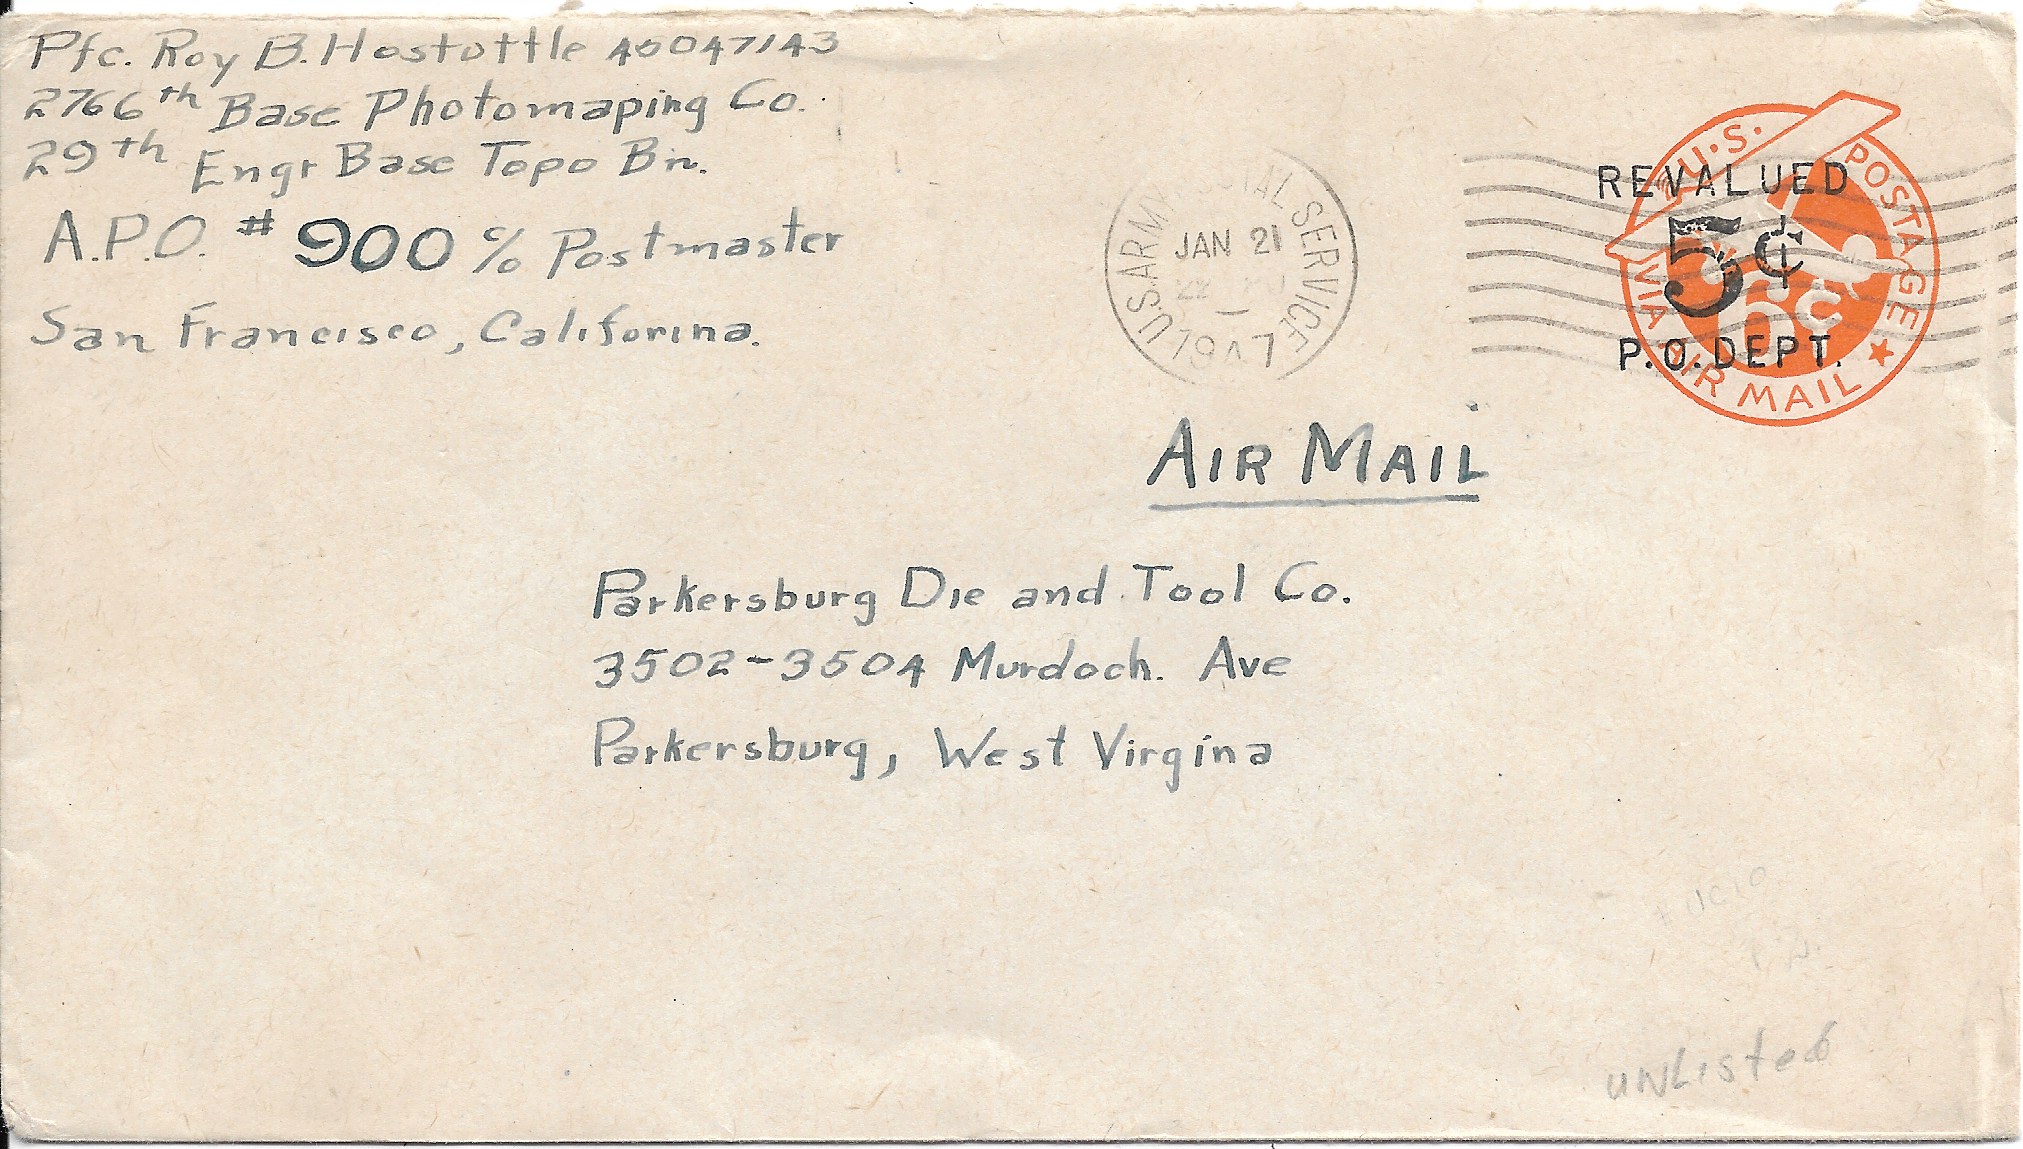 Pfc. Roy B. Hostuttle 46047143
2766th Base Photomaping Co.
29th Engr Base Topo Bn.
A.P.O. # 900 % Postmaster
San Francisco, Califorina.
U.S. ARMY POSTAL SERVICE
JAN 21
1947
U.S. POSTAGE
VIA AIR MAIL
6c
REVALUED
5¢
P.O. DEPT.
AIR MAIL
Parkersburg Die and Tool Co.
3502-3504 Murdoch. Ave
Parkersburg, West Virgina
UNListed